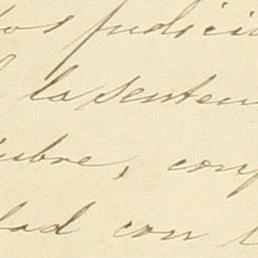 tos judici
la senten
ubre, conf
dad con l